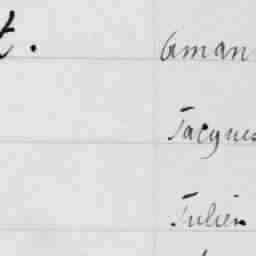 t. Aman
Jacques
Julien